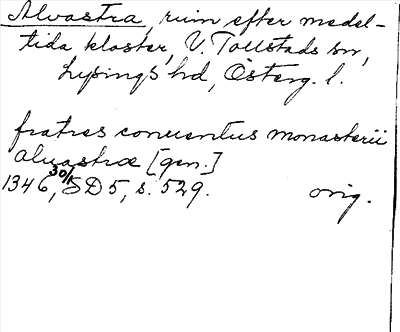 Alvastra, ruin efter medel-
tida kloster, V. Tollstads sn,
Lysings hd, Österg. l.
fratres conuentus monasterii
aluastræ [gen.]
1346, 30/5 SD 5, s. 529. orig.